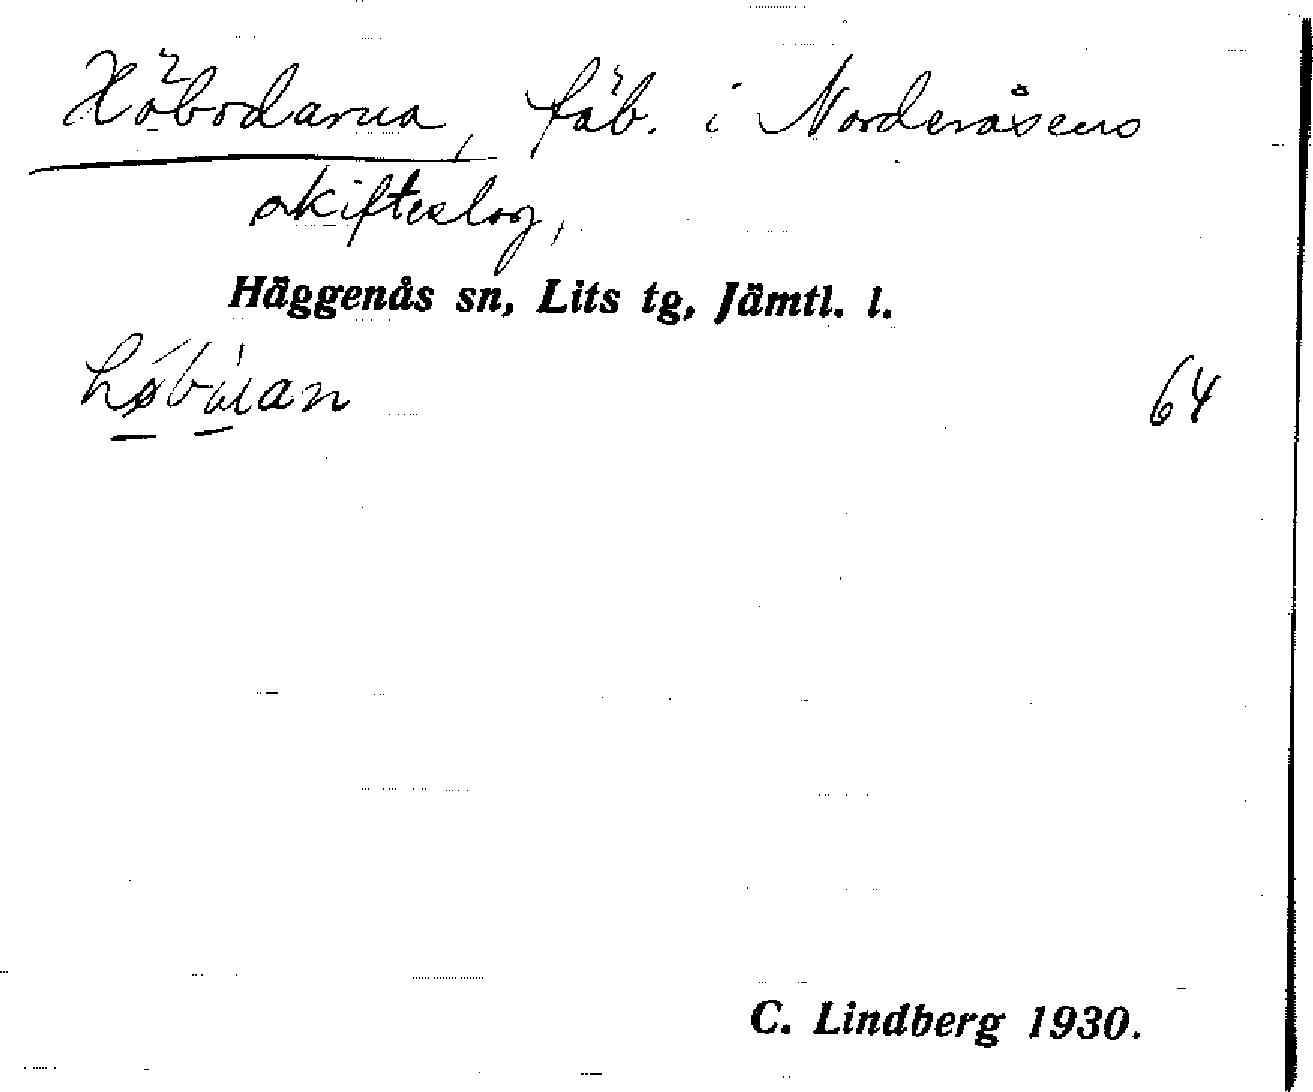 Höbodarna, fäb. i Norderåsens
skifteslag,
Häggenås sn, Lits tg, Jämtl. l.
64
C. Lindberg 1930.